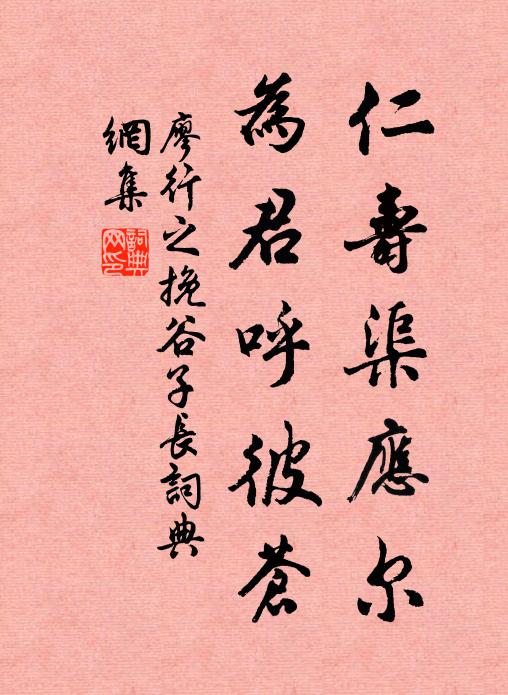 仁壽渠應尔
為君呼彼蒼
廖行之挽谷子長詞典
網集
詞典
网印